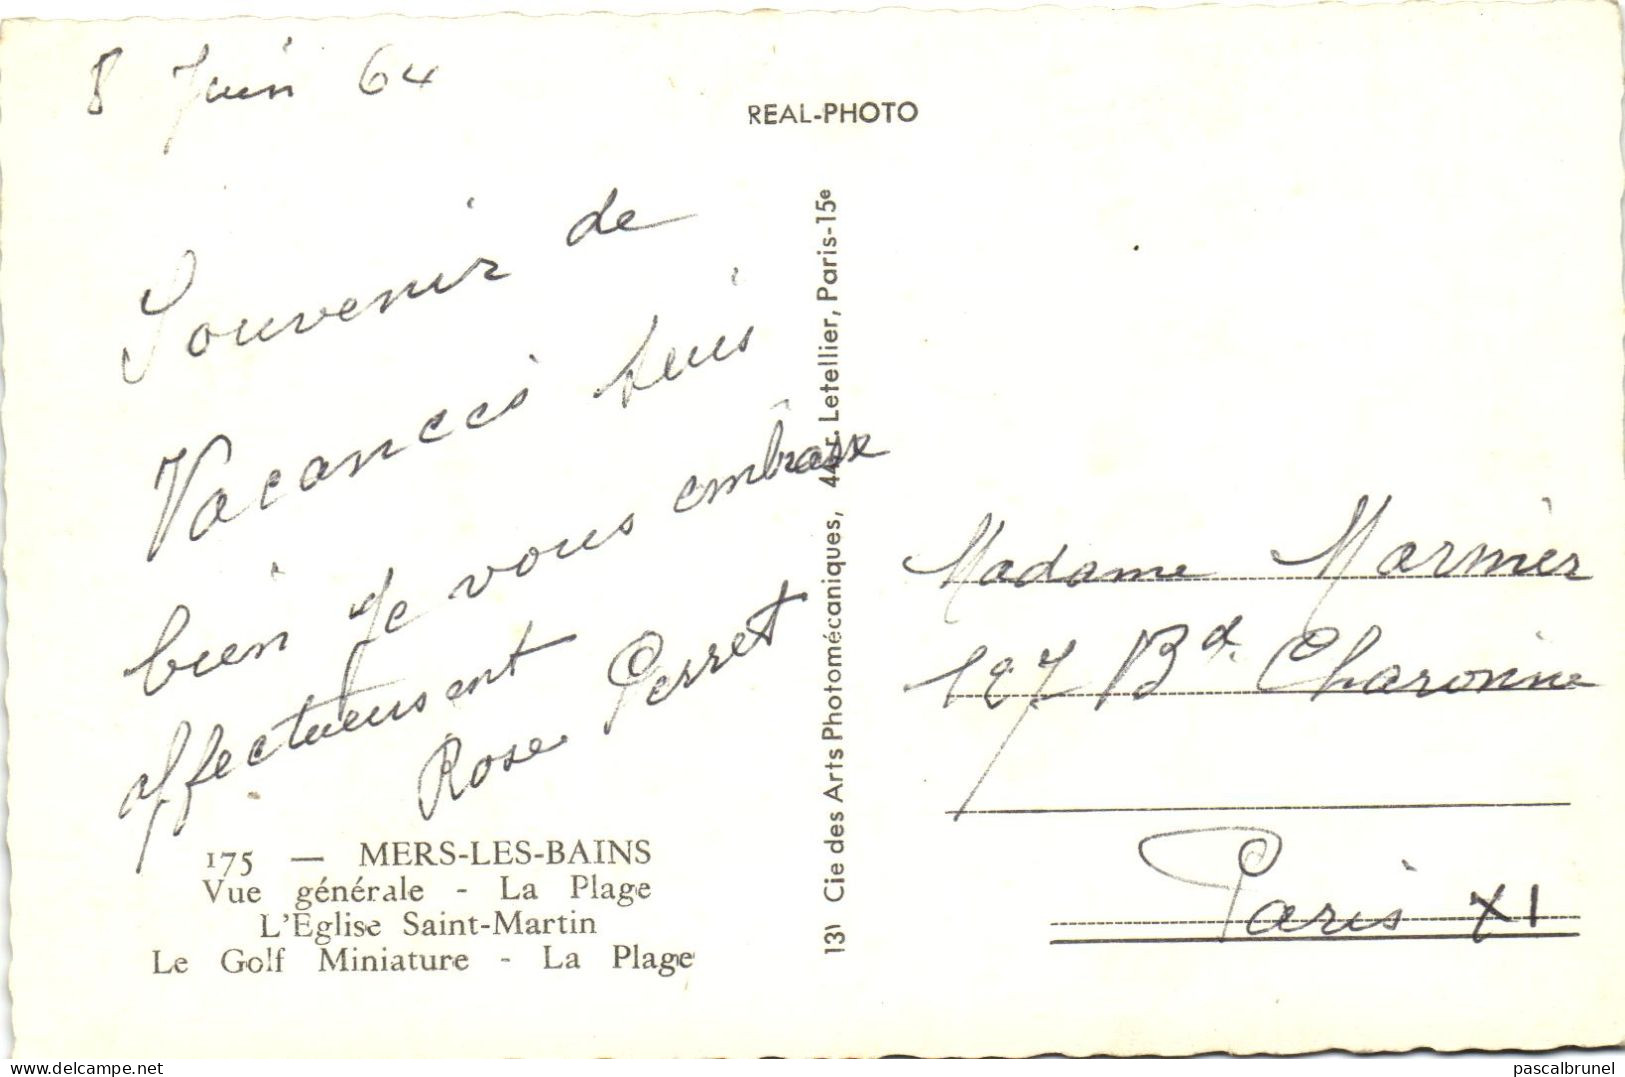 8 Juin 64
REAL-PHOTO
Souvenir de
Vacances suis
bien Je vous embrasse
affectueusement
Rose Perret
175 — MERS-LES-BAINS
Vue générale - La Plage
L'Eglise Saint-Martin
Le Golf Miniature - La Plage
131 Cie des Arts Photomécaniques, 44, r. Letellier, Paris-15e
Madame Marmier
127 Bd. Charonne
Paris XI
delcampe.net
pascalbrunel